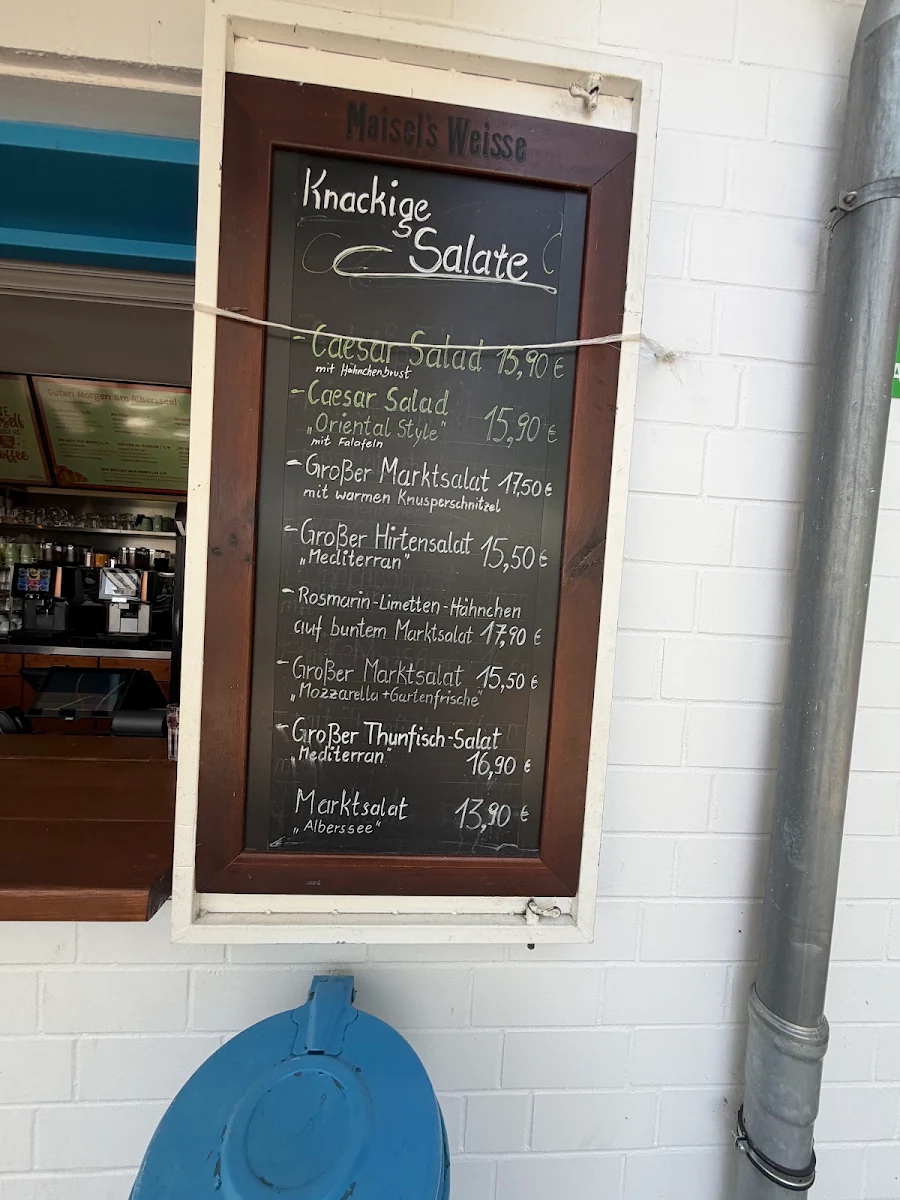 Maisel's Weisse
Knackige
Salate
- Caesar Salad 15,90 €
mit Hähnchenbrust
- Caesar Salad
„Oriental Style" 15,90 €
mit Falafeln
- Großer Marktsalat 17,50 €
mit warmen Knusperschnitzel
- Großer Hirtensalat 15,50 €
„Mediterran"
- Rosmarin-Limetten-Hähnchen
auf buntem Marktsalat 17,90 €
- Großer Marktsalat 15,50 €
„Mozzarella + Gartenfrische"
- Großer Thunfisch-Salat
„Mediterran" 16,90 €
Marktsalat 13,90 €
„Alberssee"
Guten Morgen am Alberssee!